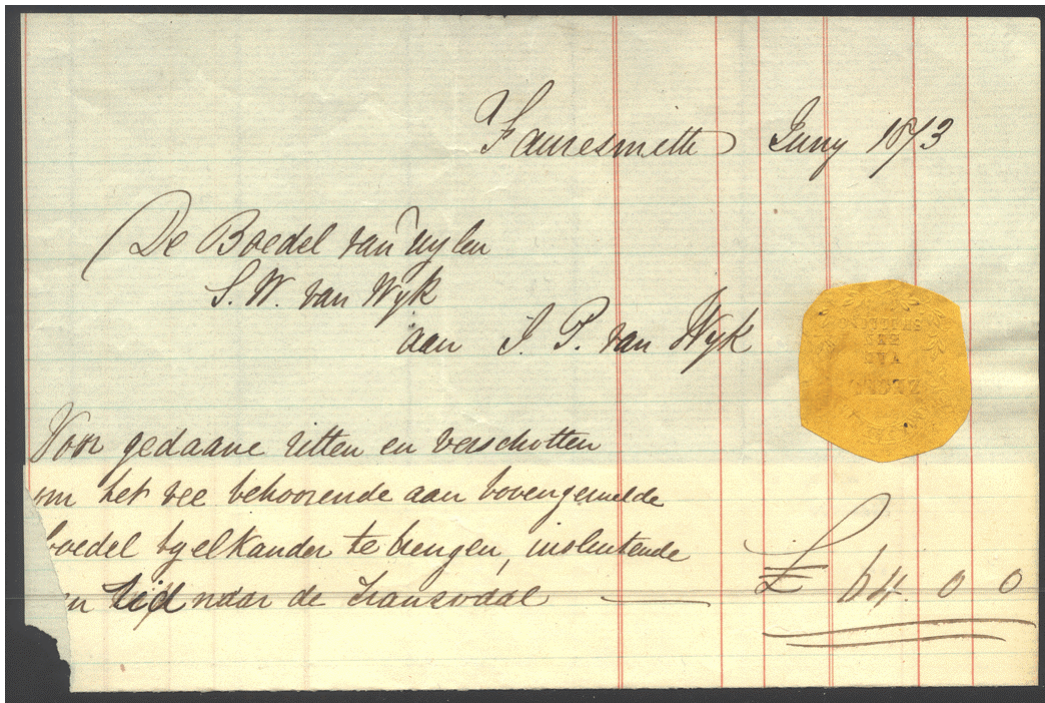 Fauresmith Juny 1873
De Boedel van wylen
S. W. van Wyk
aan J. P. van Wyk
Voor gedaane ritten en verschotten
om het vee behoorende aan bovengemelde
boedel by elkander te brengen, insluitende
en tijd naar de Transvaal — £ 64. 0 0